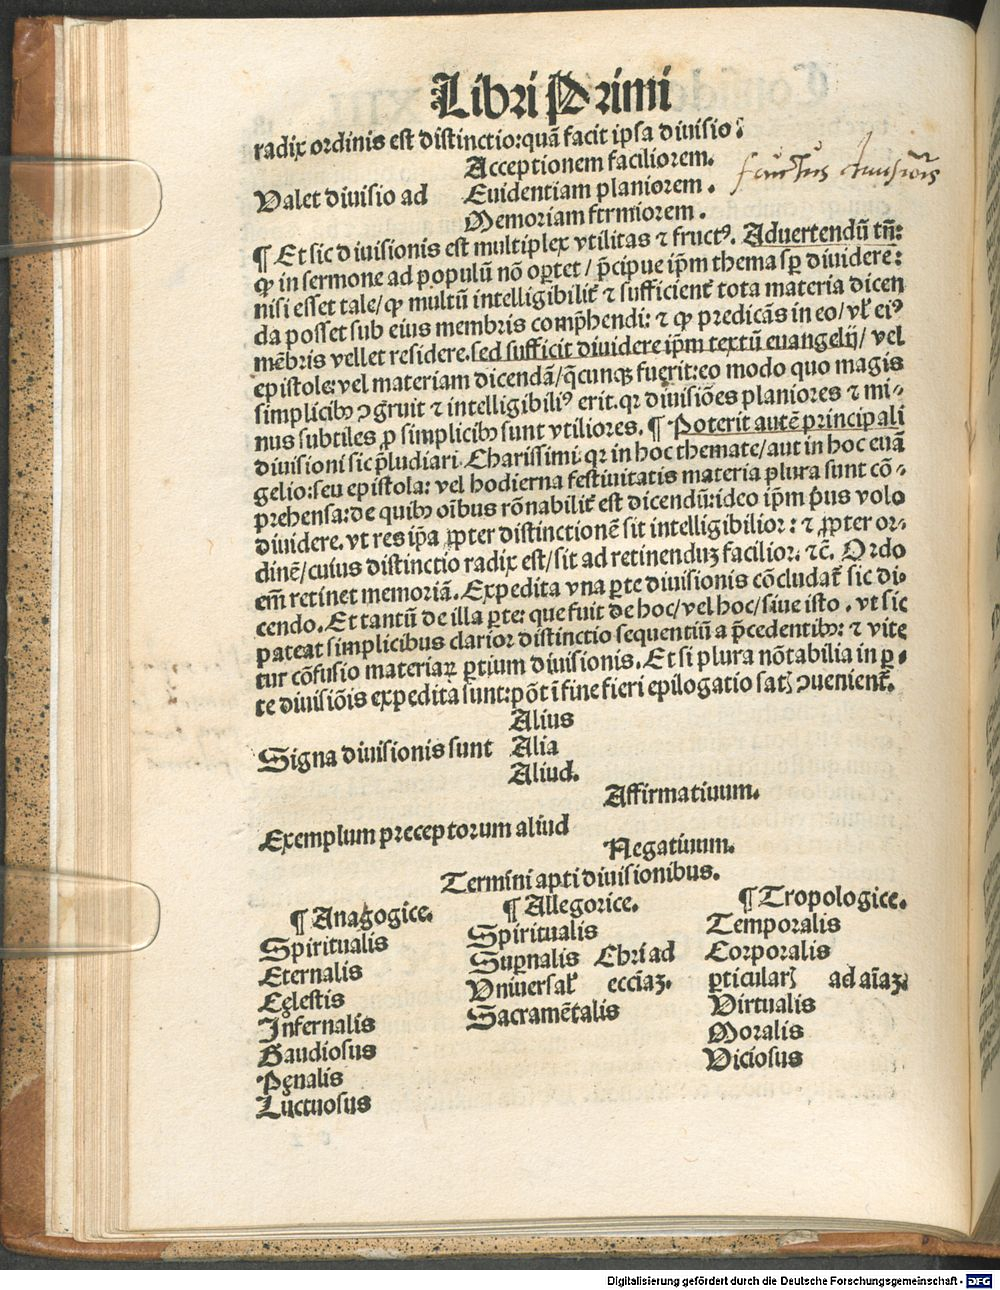 Libri Primi
radix ordinis est distinctio: quā facit ipsa diuisio:
Acceptionem faciliorem.
Valet diuisio ad Euidentiam planiorem.
Memoriam firmiorem.
fructus diuisiōis
¶ Et sic diuisionis est multiplex vtilitas ⁊ fructꝰ. Aduertendū tn̄:
ꝙ in sermone ad populū nō oꝑtet / p̄cipue ip̄m thema sꝑ diuidere:
nisi esset tale / ꝙ multū intelligibilit̄ ⁊ sufficient̄ tota materia dicen
da posset sub eius membris comp̄hendi: ⁊ ꝙ predicās in eo / vl̄ eiꝰ
mēbris vellet residere. sed sufficit diuidere ip̄m textū euangelij / vel
epistole: vel materiam dicendā / q̄cunqꝫ fuerit: eo modo quo magis
simplicibꝰ ꝯgruit ⁊ intelligibiliꝰ erit. qꝛ diuisiões planiores ⁊ mi-
nus subtiles ꝓ simplicibꝰ sunt vtiliores. ¶ Poterit autē principali
diuisioni sic p̄ludiari. Charissimi. qꝛ in hoc themate / aut in hoc euā
gelio: seu epistola: vel hodierna festiuitatis materia plura sunt cō-
prehensa: de quibꝰ oībus rōnabilit̄ est dicendū: ideo ip̄m p̄us volo
diuidere. vt res ip̄a ꝓpter distinctionē sit intelligibilior: ⁊ ꝓpter or-
dinē / cuius distinctio radix est / sit ad retinenduꝫ facilior. ⁊c̄. Ordo
em̄ retinet memoriā. Expedita vna ꝑte diuisionis cōcludat̄ sic di-
cendo. Et tantū de illa ꝑte: que fuit de hoc / vel hoc / siue isto. vt sic
pateat simplicibus clarior distinctio sequentiū a p̄cedentibꝰ: ⁊ vite
tur cōfusio materiaꝝ ꝑtium diuisionis. Et si plura nōtabilia in ꝑ-
te diuisiōis expedita sunt: pōt ī fine fieri epilogatio satꝭ ꝯuenient̄.
Alius
Signa diuisionis sunt Alia
Aliud.
Affirmatiuum.
Exemplum preceptorum aliud
Negatiuum.
Termini apti diuisionibus.
¶ Anagogice. ¶ Allegorice. ¶ Tropologice.
Spiritualis Spiritualis Temporalis
Eternalis Suꝑnalis Chri ad Corporalis
Cęlestis Vniuersal̄ eccīaꝫ. ꝑticularꝭ ad aīaꝫ.
Infernalis Sacramētalis Virtualis
Gaudiosus Moralis
Pęnalis Viciosus
Luctuosus
Digitalisierung gefördert durch die Deutsche Forschungsgemeinschaft - DFG